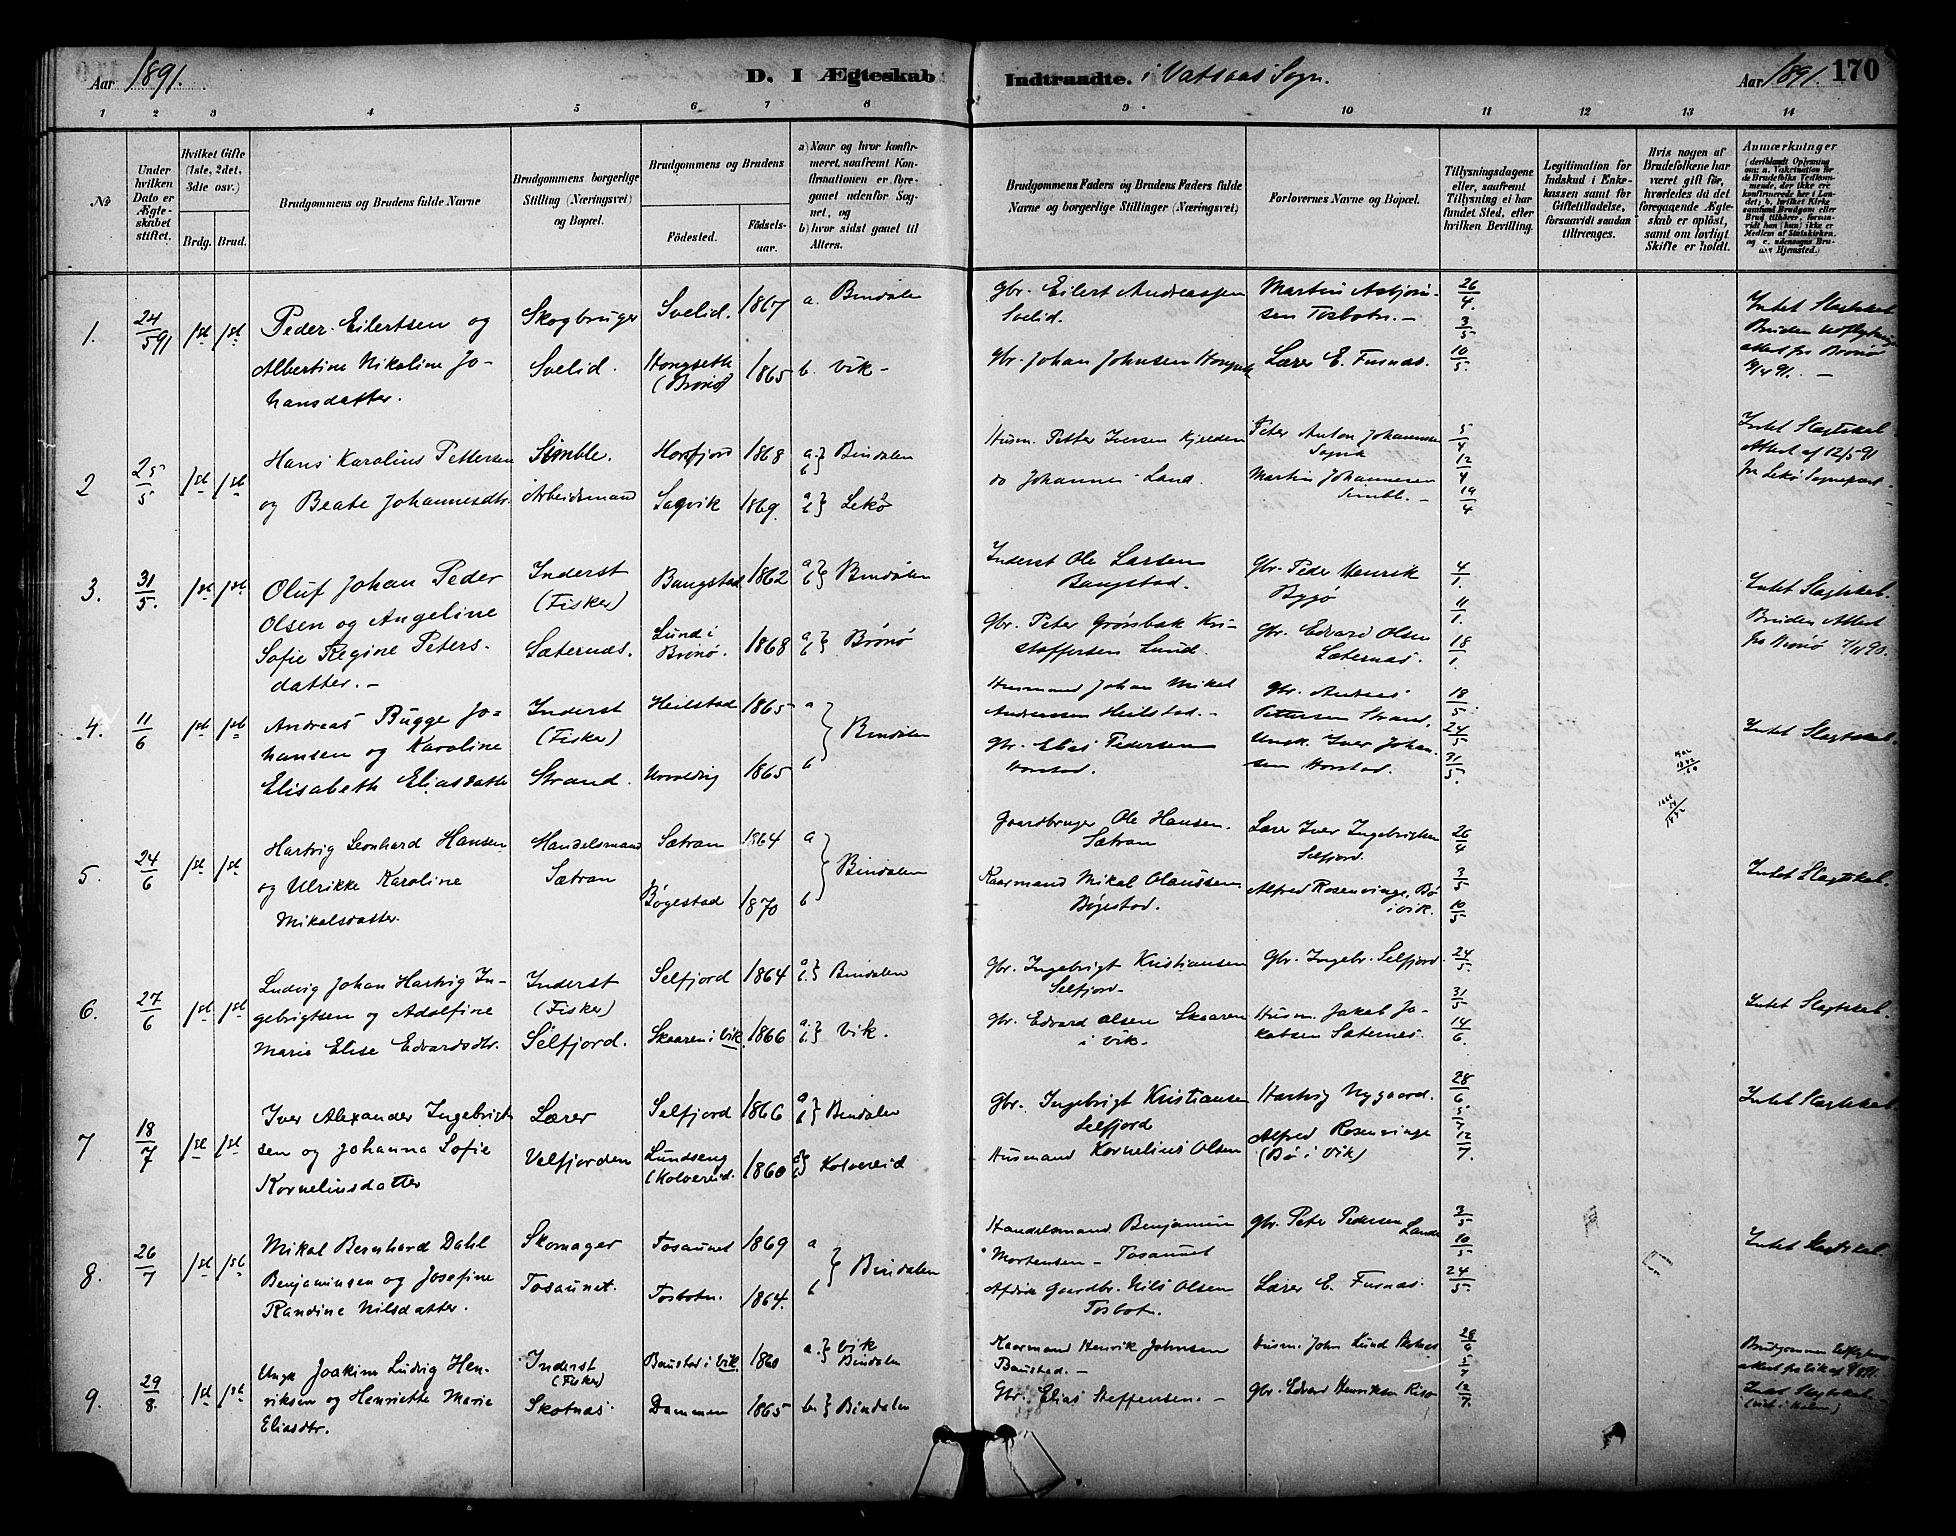 Aar 1891.
D. I Ægteskab Indtraadte. i Vatsaas Sogn.
Aar 1891. 170
1 2 3 4 5 6 7 8 9 10 11 12 13 14
No
Under hvilken Dato er Ægteskabet stiftet.
Hvilket Gifte (1ste, 2det, 3die osv.)
Brdg. Brud.
Brudgommens og Brudens fulde Navne
Brudgommens borgerlige Stilling (Næringsvei) og Bopæl.
Brudgommens og Brudens
Fødested.
Fødselsaar.
a) Naar og hvor konfirmeret, saafremt Konfirmationen er foregaaet udenfor Sognet, og
b) hvor sidst gaaet til Alters.
Brudgommens Faders og Brudens Faders fulde Navne og borgerlige Stillinger (Næringsvei)
Forlovernes Navne og Bopæl.
Tillysningsdagene eller, saafremt Tillysning ei har fundet Sted, efter hvilken Bevilling.
Legitimation for Indskud i Enkekassen samt for Giftetilladelse, forsaavidt saadan tiltrænges.
Hvis nogen af Brudefolkene har været gift før, hvorledes da det foregaaende Ægteskab er opløst, samt om lovligt Skifte er holdt.
Anmærkninger
(deriblandt Oplysning om: a. Vakcination for de Brudefolks Vedkommende, der ikke ere konfirmerede her i Landet; b. hvilket Kirkesamfund Brudgom eller Brud tilhører, forsaavidt han (hun) ikke er Medlem af Statskirken, og c. udensogns Bruds Hjemsted.)
1. 24/5 91 1ste 1ste Peder Eilertsen og Skogbruger Svelid. 1867 a. Bindalen
Albertine Nikoline Jo- Svelid. Hongseth 1865 b. Vik-
hansdatter. (Brønø)
Gbr. Eilert Andreassen Martin Asbjørn- 26/4.
Svelid. sen Tosbotn. - 3/5
Gbr. Johan Johnsen Lærer E. Fusnæs. 10/5.
Intet Slagtskab.
attest fra Brønø
2 25/5 1ste 1ste Hans Karolius Pettersen Simble. Horsfjord 1868 a. b } Bindalen
og Beate Johannesdtr. Arbeidsmand Sagvik 1869. a b } Lekø
Husm. Petter Iversen Peter Anton Johannesen 5/4
do Johannes Land. Martin Johannesen 12/4
Simbl. - 19/4
Intet Slagtskab
Attest af 12/5 91
fra Lekø Sognepræst -
3. 31/5. 1ste 1ste Oluf Johan Peder Inderst Bangstad 1862 a b } Bindalen
Olsen og Angeline (Fisker)
Sofie Regine Peters- Sæternæs. Lund i Brønø. 1868 a b } Brønø
datter. -
Inderst Ole Larsen Gbr. Peder Henrik 4/1.
Bangstad. Bygø 11/1.
Gbr. Peter Grønbæk Kri- Gbr. Edvard Olsen 18/1
stoffersen Lund. Sæternæs.
Intet Slagtskab.
Bruden Attest
fra Brønø 7/11 90.
4. 11/6 1ste 1ste Andreas Bugge Jo- Inderst Heilstad 1865 a } Bindalen
hansen og Karoline (Fisker)
Elisabeth Eliasdatter Strand. 1865 b
Husmand Johan Mikal Gbr. Andreas 18/5.
Andreassen Heilstad. - Pettersen Strand. 24/5
Gbr. Elias Pedersen Ungk. Iver Johan- 31/5.
Horstad. sen Horstad.
Intet Slagtskab.
5. 24/6 1ste 1ste Hartvig Leonhard Hansen Handelsmand Sætran 1864 a } Bindalen
og Ulrikke Karoline Sætran
Mikalsdatter. Bøgestad 1870 b
Gaardbruger Ole Hansen. Lærer Iver Ingebrigtsen 26/4
Sætran Selfjord.
Kaarmand Mikal Olaussen Alfred Rosenvinge, Bø 3/5
Bøgestad. i Vik. 10/5
Intet Slagtskab.
6. 27/6 1ste 1ste Ludvig Johan Hartvig In- Inderst Selfjord 1864 a. b. } Bindalen
gebrigtsen og Adolfine (Fisker)
Marie Elise Edvardsdtr. Selfjord. Skaaren i Vik 1866 a. b. } Vik.
Gbr. Ingebrigt Kristiansen Gbr. Ingebr. Selfjord. 24/5.
Selfjord. 31/5
Gbr. Edvard Olsen Skaaren Husm. Jakob Ja- 14/6.
i Vik. kobsen Sæternes.
Intet Slagtskab.
7 18/7 1ste 1ste Iver Alexander Ingebrigt- Lærer Selfjord 1866 a b } Bindalen
sen og Johanna Sofie Velfjorden Lundseng 1860 a b } Kolvereid
Korneliusdatter (Kolvereid.
Gbr. Ingebrigt Kristiansen Hartvig Nygaard. 28/6
Selfjord 5/7
Husmand Kornelius Olsen Alfred Rosenvinge 12/7.
(Bø i Vik)
Intet Slagtskab.
8. 26/7 1ste 1ste Mikal Bernhard Dahl Skomager Tosaunet 1869 a } Bindalen
Benjaminsen og Josefine Tosaunet. Tosbotn. 1864. b
Randine Nilsdatter.
Handelsmand Benjamin Gbr. Peter Pedersen Lande 3/5
Mortensen - Tosaunet 10/5
Afdøde Gaardbr. Nils Olsen Lærer E. Fusnæs. 24/5
Tosbotn.
Intet Slagtskab.
9. 29/8. 1ste 1ste Ungk Joakim Ludvig Hen- Inderst Baustad i Vik 1860 a. } Vik Bindalen
riksen og Henriette Marie (Fisker)
Eliasdtr. Skotnæs. Dammen 1865 b. } Bindalen
Kaarmand Henrik Johnsen Husm. John Lund 28/6
Baustad. - 5/7
Gbr. Elias Steffensen. - Gbr. Edvard Henriksen 12/7.
Intet Slagtskab -